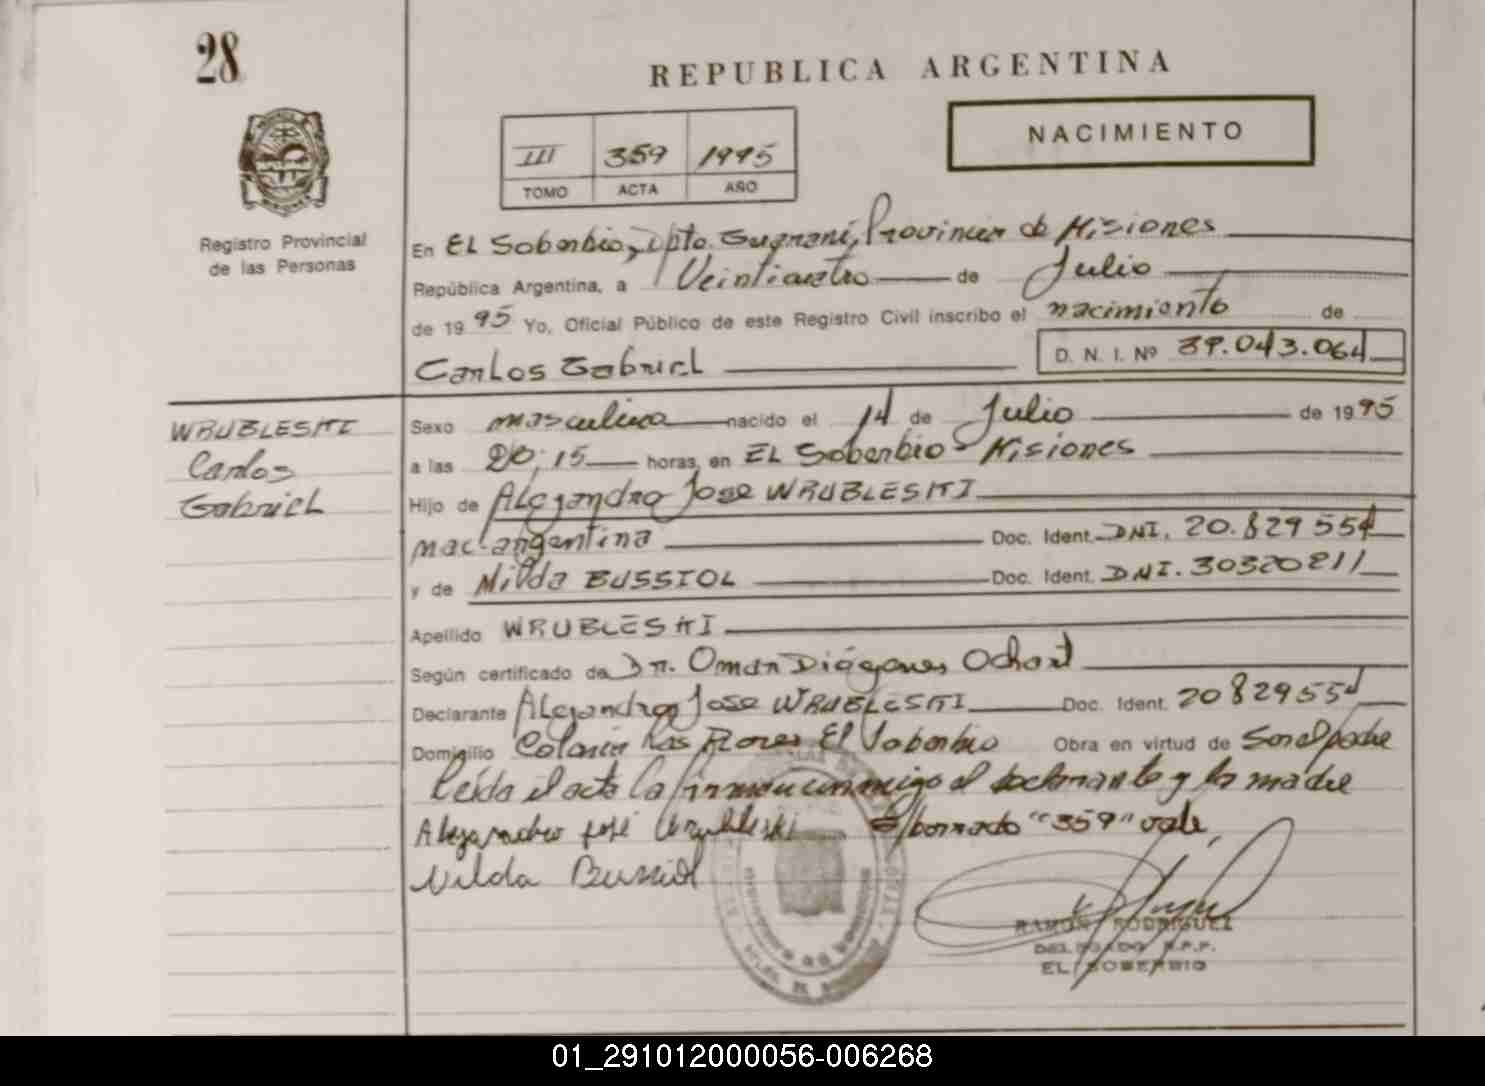 28
REPUBLICA ARGENTINA
NACIMIENTO
III 359 1995
TOMO ACTA AÑO
Registro Provincial
de las Personas
En EL Soberbio, Dpto. Guaraní, Provincia de Misiones
República Argentina, a Veinticuatro de Julio
de 1995 Yo, Oficial Público de este Registro Civil inscribo el nacimiento de
Carlos Gabriel D. N. I. Nº 39.043.064
WRUBLESKI
Carlos
Gabriel
Sexo masculino nacido el 14 de Julio de 1995
a las 20:15 horas, en EL Soberbio - Misiones
Hijo de Alejandro Jose WRUBLESKI
nac-argentina Doc. Ident. DNI. 20.829554
y de Nilda BUSSIOL Doc. Ident. DNI. 30320211
Apellido WRUBLESKI
Según certificado de Dr. Omar Diógenes
Declarante Alejandro Jose WRUBLESKI Doc. Ident. 20829554
Domicilio Colonia Las Flores El Soberbio Obra en virtud de Ser el padre
Leída el acta la firman conmigo el declarante y la madre
Alejandro José Wrubleski E/borrado "359" vale,
Nilda Bussiol
RAMON RODRIGUEZ
DELEGADO R.P.P.
EL SOBERBIO
01_291012000056-006268